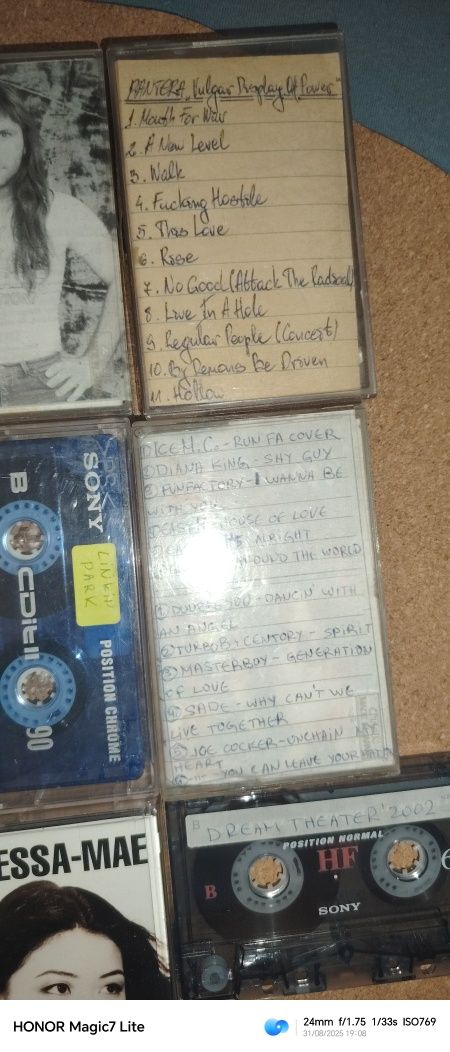 PANTERA „Vulgar Display Of Power"
1. Mouth For War
2. A New Level
3. Walk
4. Fucking Hostile
5. This Love
6. Rise
7. No Good (Attack The Radical)
8. Live In A Hole
9. Regular People (Conceit)
10. By Demons Be Driven
11. Hollow
ICE M.C. - RUN FA COVER
DIANA KING - SHY GUY
FUNFACTORY - I WANNA BE
WITH
HOUSE OF LOVE
ALRIGHT
AROUND THE WORLD
① DOUBLE YOU - DANCIN' WITH
AN ANGEL
② TURBO B + CENTORY - SPIRIT
③ MASTERBOY - GENERATION
OF LOVE
④ SADE - WHY CAN'T WE
LIVE TOGETHER
⑤ JOE COCKER - UNCHAIN MY
HEART
⑥ -"- YOU CAN LEAVE YOUR HAT ON
SONY
B
CDit II
90
POSITION CHROME
LINKIN
PARK
ESSA-MAE
B
DREAM THEATER '2002"
POSITION NORMAL
B
HF
6
SONY
HONOR Magic7 Lite
24mm f/1.75 1/33s ISO769
31/08/2025 19:08